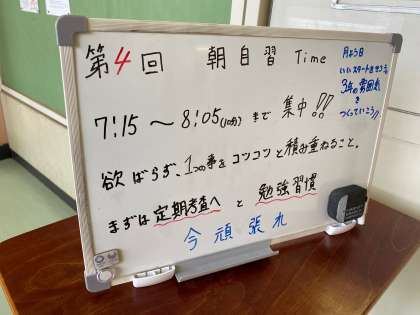 第4回 朝自習 Time
月よう日
いいスタートをせつ
3年の雰囲気を
つくっていこう!!
7:15 〜 8:05 まで 集中!!
欲ばらず、1つの事をコツコツと積み重ねること。
まずは定期考査へ と 勉強習慣
今頑張れ